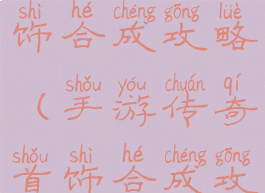 shì hé chéng gōng lüè
饰合成攻略
shǒu yóu chuán qí
（手游传奇
shǒu shì hé chéng gōng
首饰合成攻